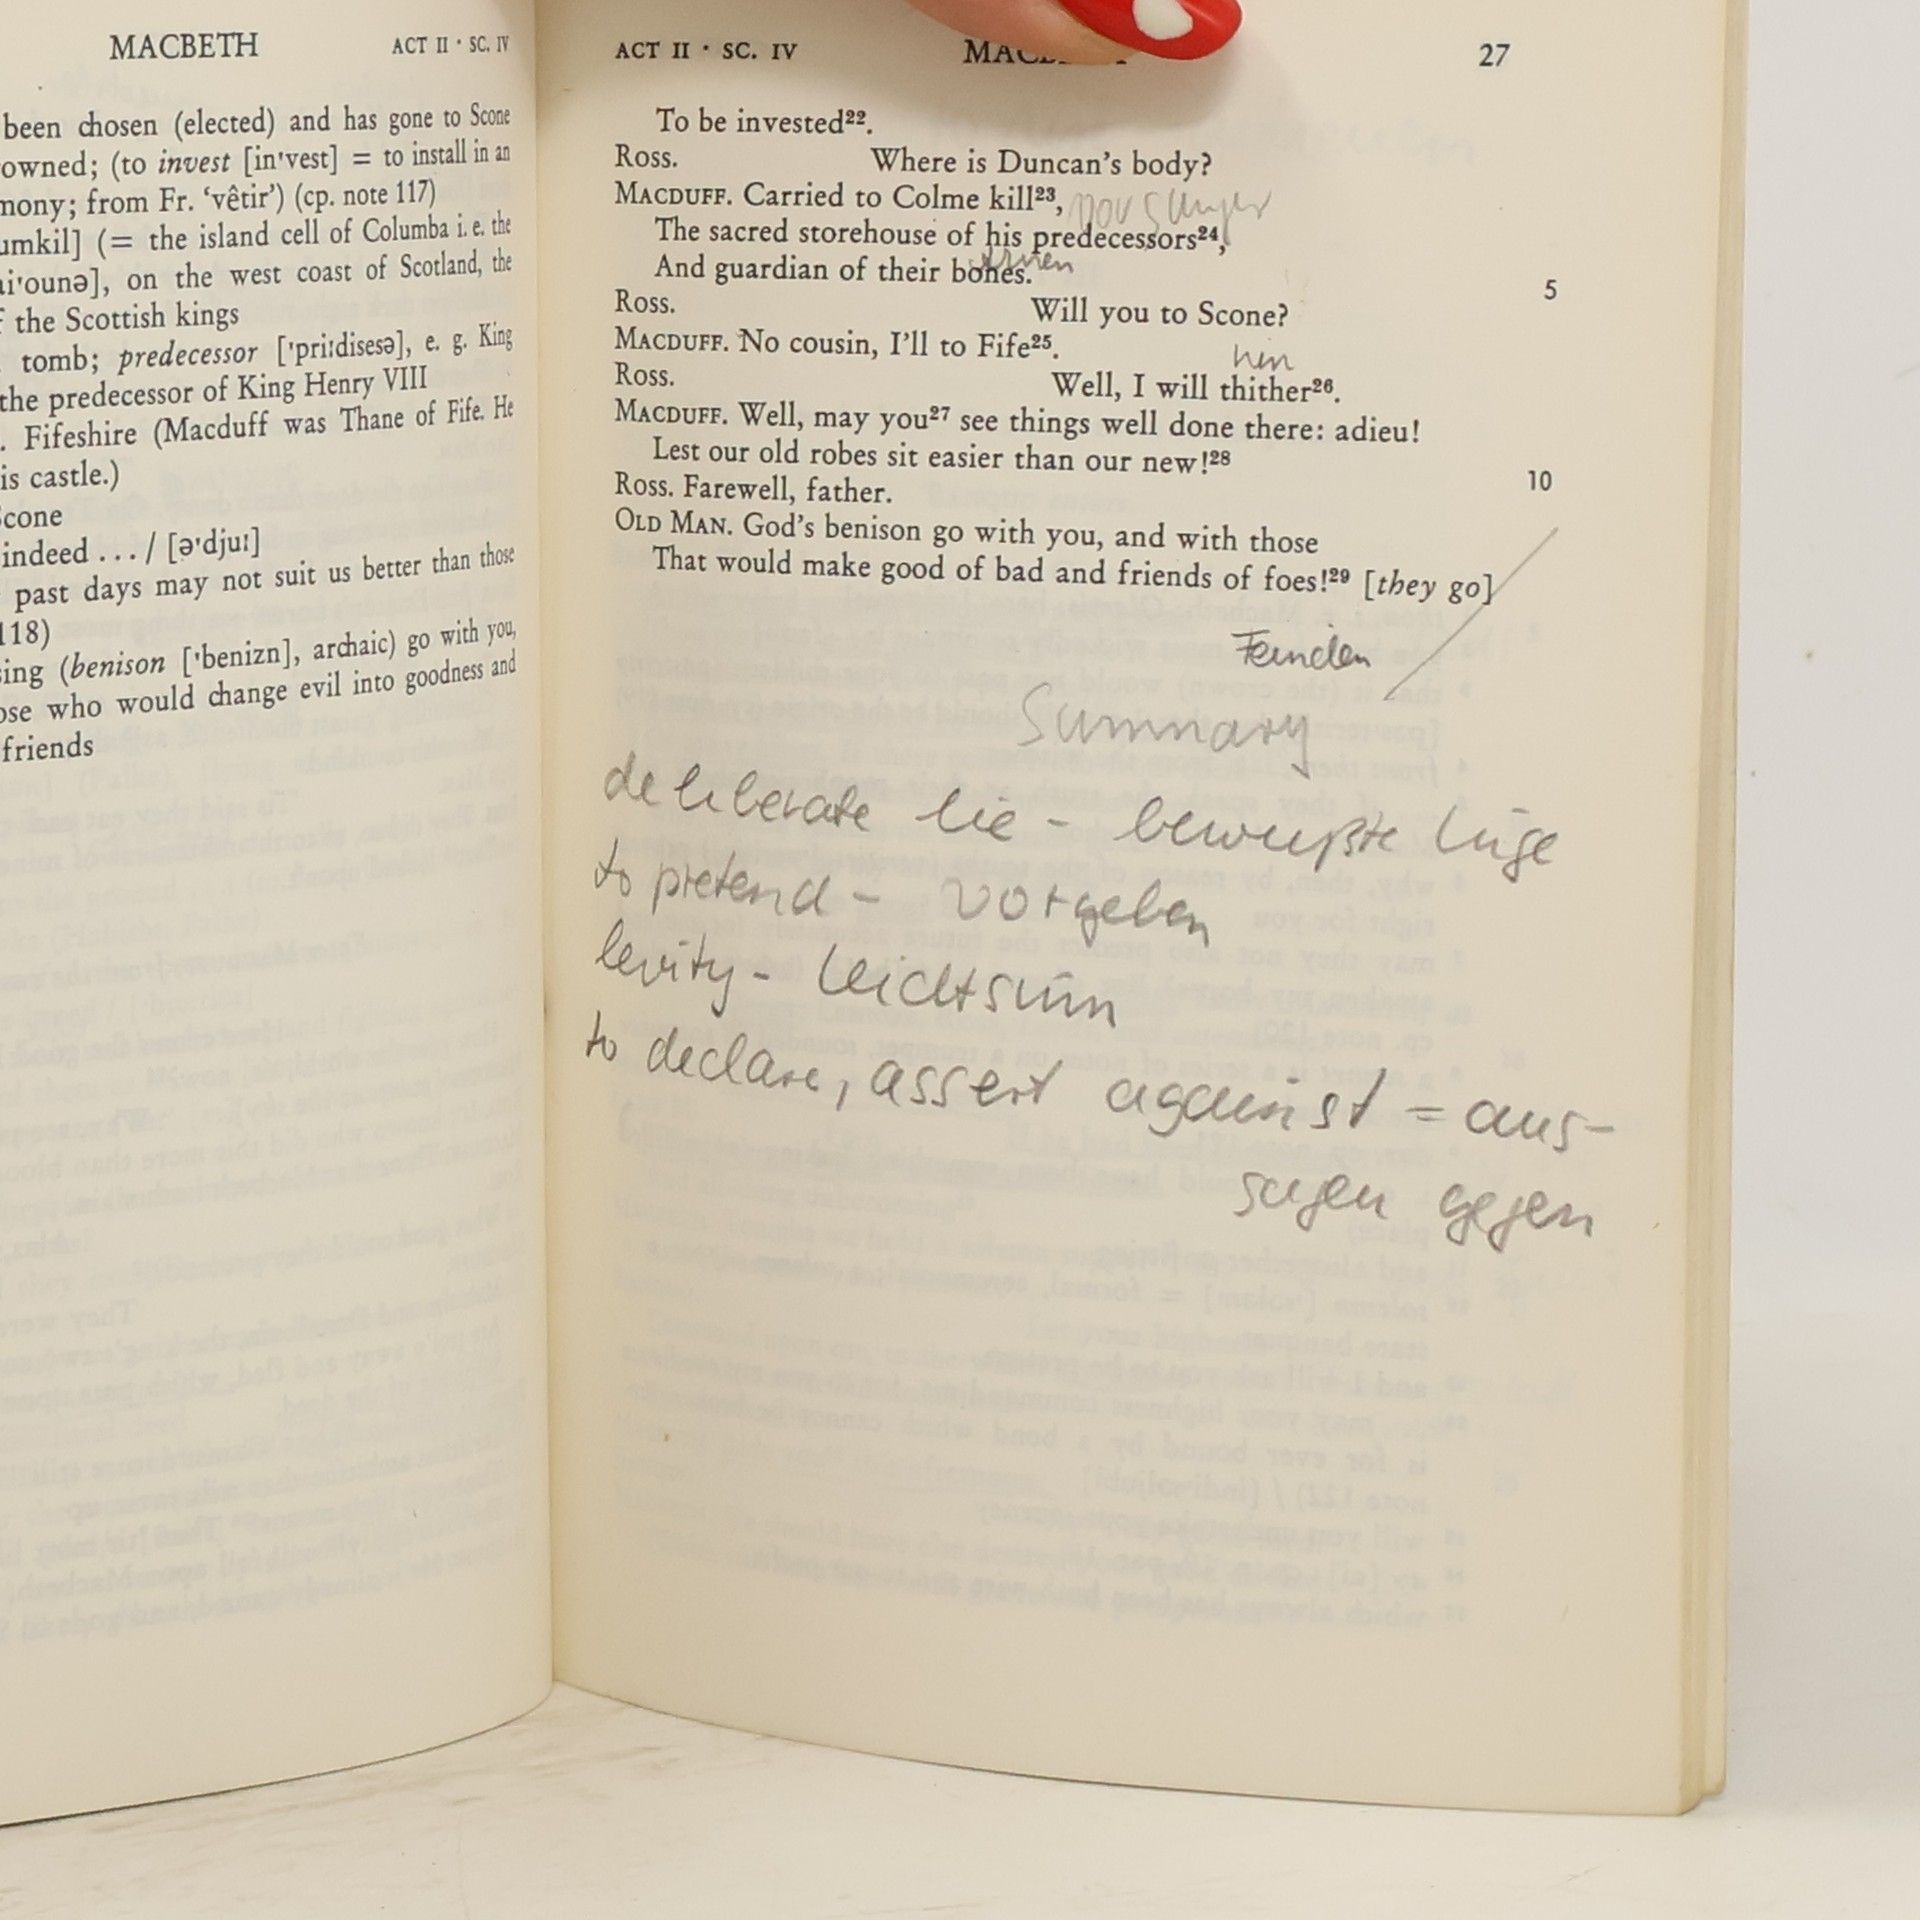 MACBETH ACT II · SC. IV
been chosen (elected) and has gone to Scone
owned; (to invest [in'vest] = to install in an
mony; from Fr. ‘vêtir’) (cp. note 117)
umkil] (= the island cell of Columba i. e. the
ai'ounə], on the west coast of Scotland, the
f the Scottish kings
tomb; predecessor ['pri:disesə], e. g. King
the predecessor of King Henry VIII
. Fifeshire (Macduff was Thane of Fife. He
is castle.)
Scone
indeed . . . / [ə'dju:]
past days may not suit us better than those
118)
sing (benison ['benizn], archaic) go with you,
ose who would change evil into goodness and
friends
ACT II · SC. IV 27
To be invested²².
Ross. Where is Duncan's body?
MACDUFF. Carried to Colme kill²³,
The sacred storehouse of his predecessors²⁴,
And guardian of their bones.
Ross. Will you to Scone? 5
MACDUFF. No cousin, I'll to Fife²⁵.
hin
Ross. Well, I will thither²⁶.
MACDUFF. Well, may you²⁷ see things well done there: adieu!
Lest our old robes sit easier than our new!²⁸
Ross. Farewell, father. 10
OLD MAN. God's benison go with you, and with those
That would make good of bad and friends of foes!²⁹ [they go]
Feinden
Summary
deliberate lie - bewußte Lüge
to pretend - vorgeben
levity - Leichtsinn
to declare, assert against = aus-
sagen gegen